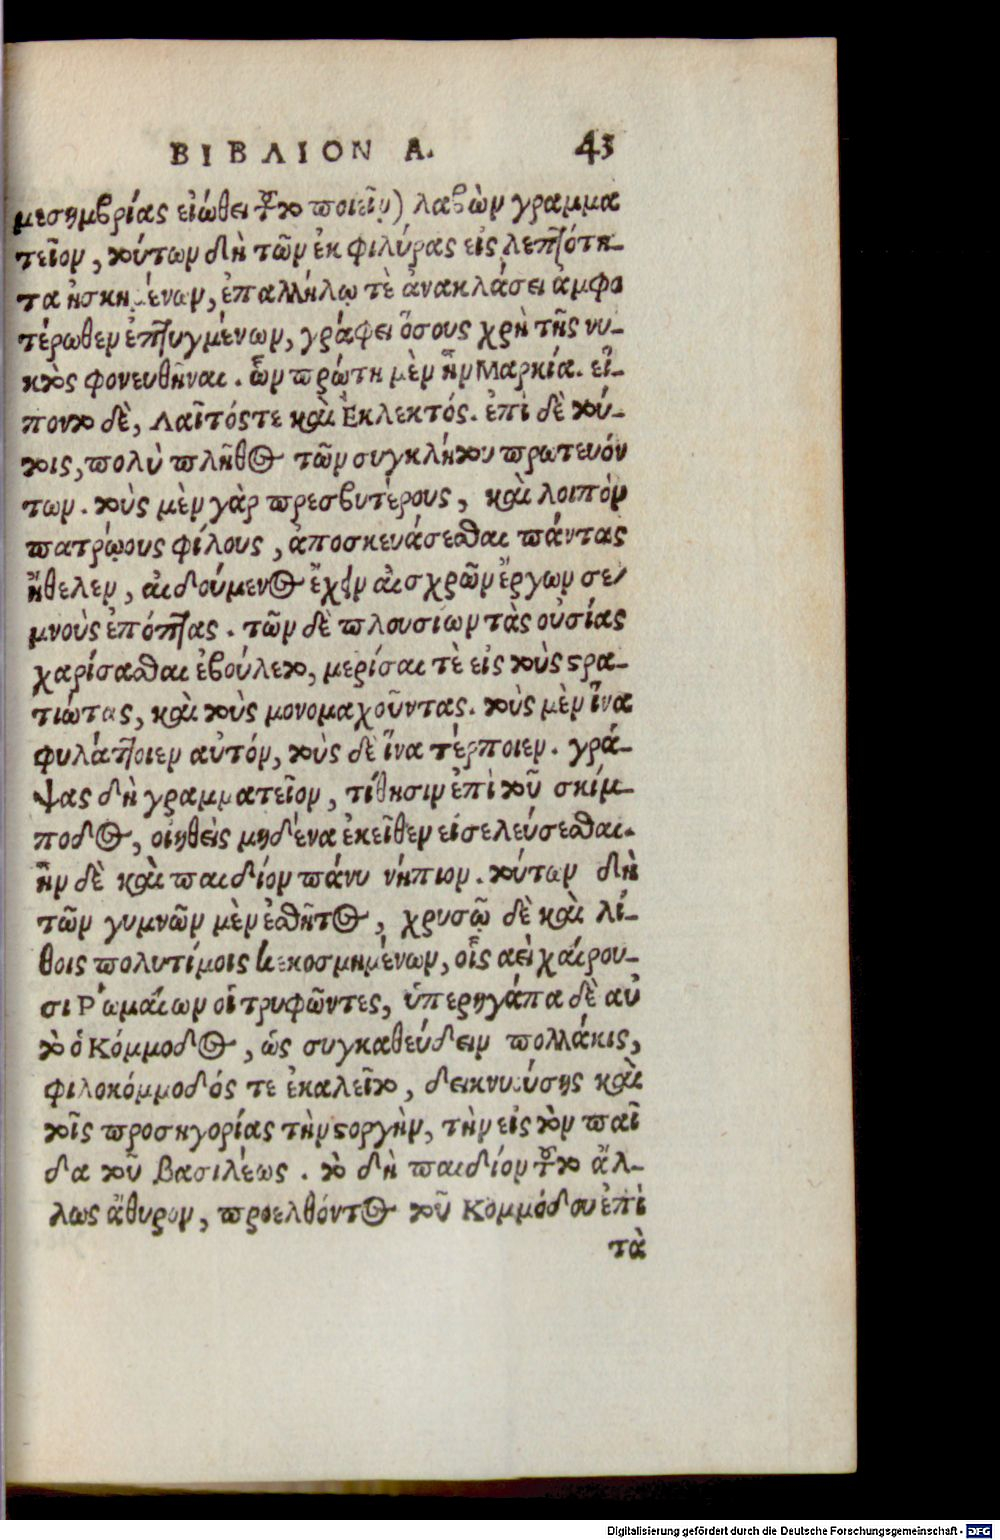 ΒΙΒΛΙΟΝ Α. 43
μεσημβρίας εἰώθει τοῦτο ποιεῖν) λαβὼν γραμμα
τεῖον, τούτων δὴ τῶν ἐκ φιλύρας εἰς λεπτότη-
τα ἠσκημένων, ἐπαλλήλῳ τὲ ἀνακλάσει ἀμφο
τέρωθεν ἐπτυγμένων, γράφει ὅσους χρὴ τῆς νυ-
κτὸς φονευθῆναι. ὧν πρώτη μὲν ἦν Μαρκία. εἵ-
ποντο δὲ, Λαῖτόςτε καὶ Ἐκλεκτός. ἐπὶ δὲ τού-
τοις, πολὺ πλῆθος τῶν συγκλήτου πρωτευόν
των. τοὺς μὲν γὰρ πρεσβυτέρους, καὶ λοιπὸν
πατρῴους φίλους, ἀποσκευάσεσθαι πάντας
ἤθελεν, αἰδούμενος ἔχειν αἰσχρῶν ἔργων σε
μνοὺς ἐπόπτας. τῶν δὲ πλουσίων τὰς οὐσίας
χαρίσασθαι ἐβούλετο, μερίσαι τὲ εἰς τοὺς στρα-
τιώτας, καὶ τοὺς μονομαχοῦντας. τοὺς μὲν ἵνα
φυλάττοιεν αὐτόν, τοὺς δὲ ἵνα τέρποιεν. γρά-
ψας δὴ γραμματεῖον, τίθησιν ἐπὶ τοῦ σκίμ-
ποδος, οἰηθεὶς μηδένα ἐκεῖθεν εἰσελεύσεσθαι.
ἦν δὲ καὶ παιδίον πάνυ νήπιον. τούτων δὴ
τῶν γυμνῶν μὲν ἐσθῆτος, χρυσῷ δὲ καὶ λί-
θοις πολυτίμοις κεκοσμημένων, οἷς αεὶ χαίρου-
σι Ῥωμαίων οἱ τρυφῶντες, ὑπερηγάπα δὲ αὐ
τὸ ὁ Κόμμοδος, ὡς συγκαθεύδειν πολλάκις,
φιλοκόμμοδός τε ἐκαλεῖτο, δεικνυούσης καὶ
τοῖς προσηγορίας τὴν στοργὴν, τὴν εἰς τὸν παῖ
δα τοῦ βασιλέως. τὸ δὴ παιδίον τοῦτο ἄλ-
λως ἄθυρον, προελθόντος τοῦ Κομμόδου ἐπὶ
τὰ
Digitalisierung gefördert durch die Deutsche Forschungsgemeinschaft - DFG